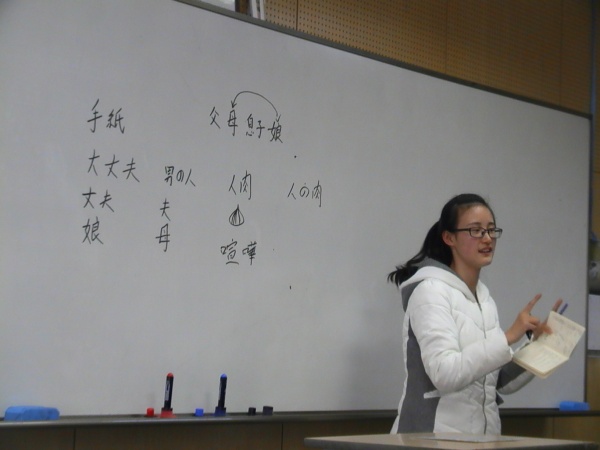 手紙
大丈夫
丈夫
娘
男の人
夫
母
父母息子娘
人肉
喧嘩
人の肉